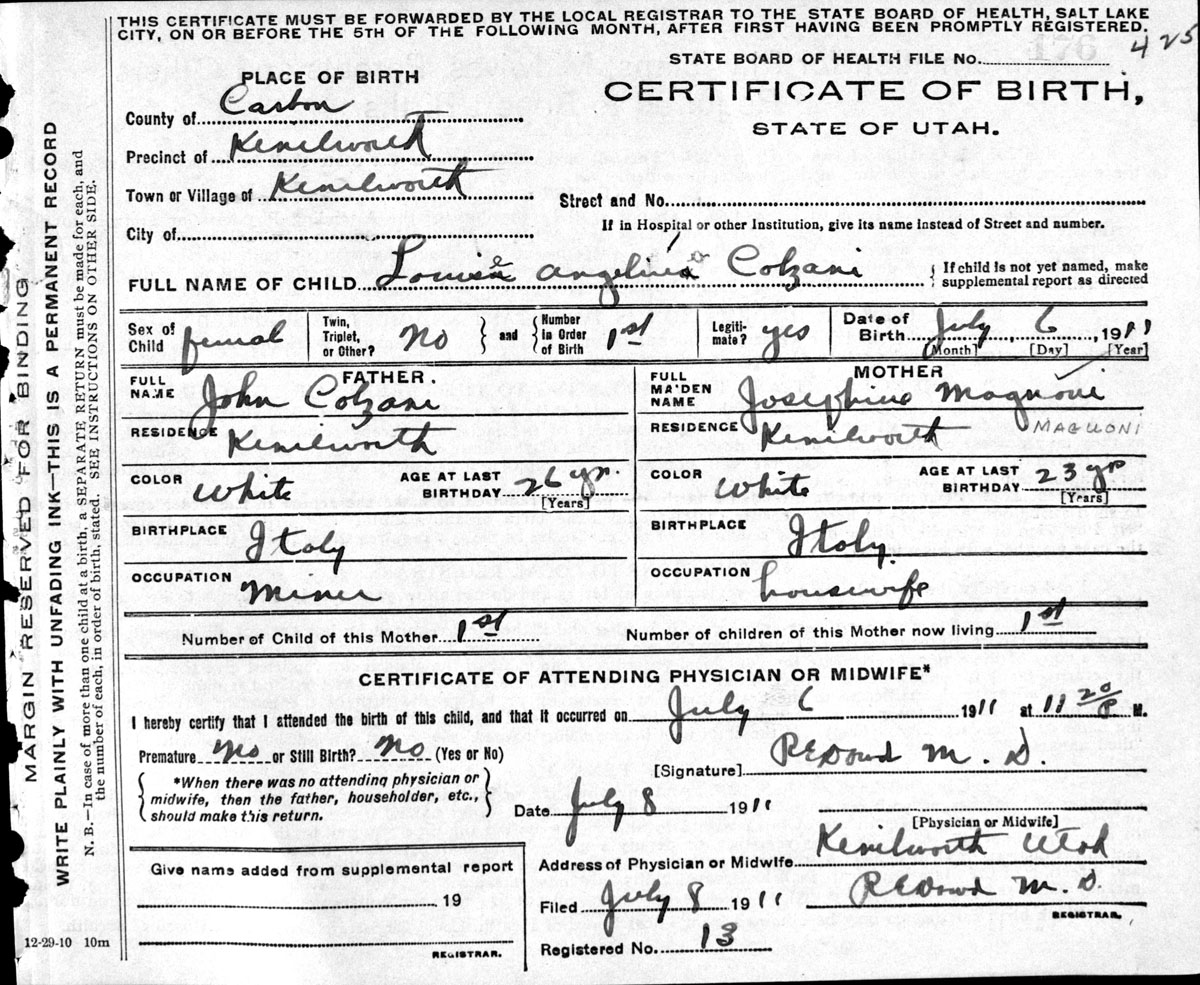 THIS CERTIFICATE MUST BE FORWARDED BY THE LOCAL REGISTRAR TO THE STATE BOARD OF HEALTH, SALT LAKE
CITY, ON OR BEFORE THE 5TH OF THE FOLLOWING MONTH, AFTER FIRST HAVING BEEN PROMPTLY REGISTERED.
425
STATE BOARD OF HEALTH FILE No.
PLACE OF BIRTH
CERTIFICATE OF BIRTH,
STATE OF UTAH.
County of Carbon
Precinct of Kenilworth
Town or Village of Kenilworth
Street and No.
City of
If in Hospital or other Institution, give its name instead of Street and number.
FULL NAME OF CHILD Louise Angelina Colzani
If child is not yet named, make
supplemental report as directed
Sex of Child femal
Twin, Triplet, or Other? No
and
Number in Order of Birth 1st
Legiti-mate? yes
Date of Birth July 6, 1911
[Month] [Day] [Year]
FATHER.
FULL NAME John Colzani
MOTHER
FULL MAIDEN NAME Josephine Magnoni
RESIDENCE Kenilworth
RESIDENCE Kenilworth MAGUONI
COLOR White
AGE AT LAST BIRTHDAY 26 yr.
[Years]
COLOR White
AGE AT LAST BIRTHDAY 23 yr
[Years]
BIRTHPLACE Italy
BIRTHPLACE Italy.
OCCUPATION Miner
OCCUPATION housewife
Number of Child of this Mother 1st
Number of children of this Mother now living 1st
CERTIFICATE OF ATTENDING PHYSICIAN OR MIDWIFE*
I hereby certify that I attended the birth of this child, and that it occurred on July 6 1911 at 11 20/P M.
Premature No or Still Birth? No (Yes or No)
[Signature] REDowd M. D.
*When there was no attending physician or
midwife, then the father, householder, etc.,
should make this return.
Date July 8 1911
[Physician or Midwife]
Address of Physician or Midwife Kenilworth Utah
Give name added from supplemental report
19
REGISTRAR.
Filed July 8 1911 REDowd M. D.
REGISTRAR.
Registered No. 13
12-29-10 10m
MARGIN RESERVED FOR BINDING
WRITE PLAINLY WITH UNFADING INK—THIS IS A PERMANENT RECORD
N. B.—In case of more than one child at a birth, a SEPARATE RETURN must be made for each, and
the number of each, in order of birth, stated. SEE INSTRUCTIONS ON OTHER SIDE.